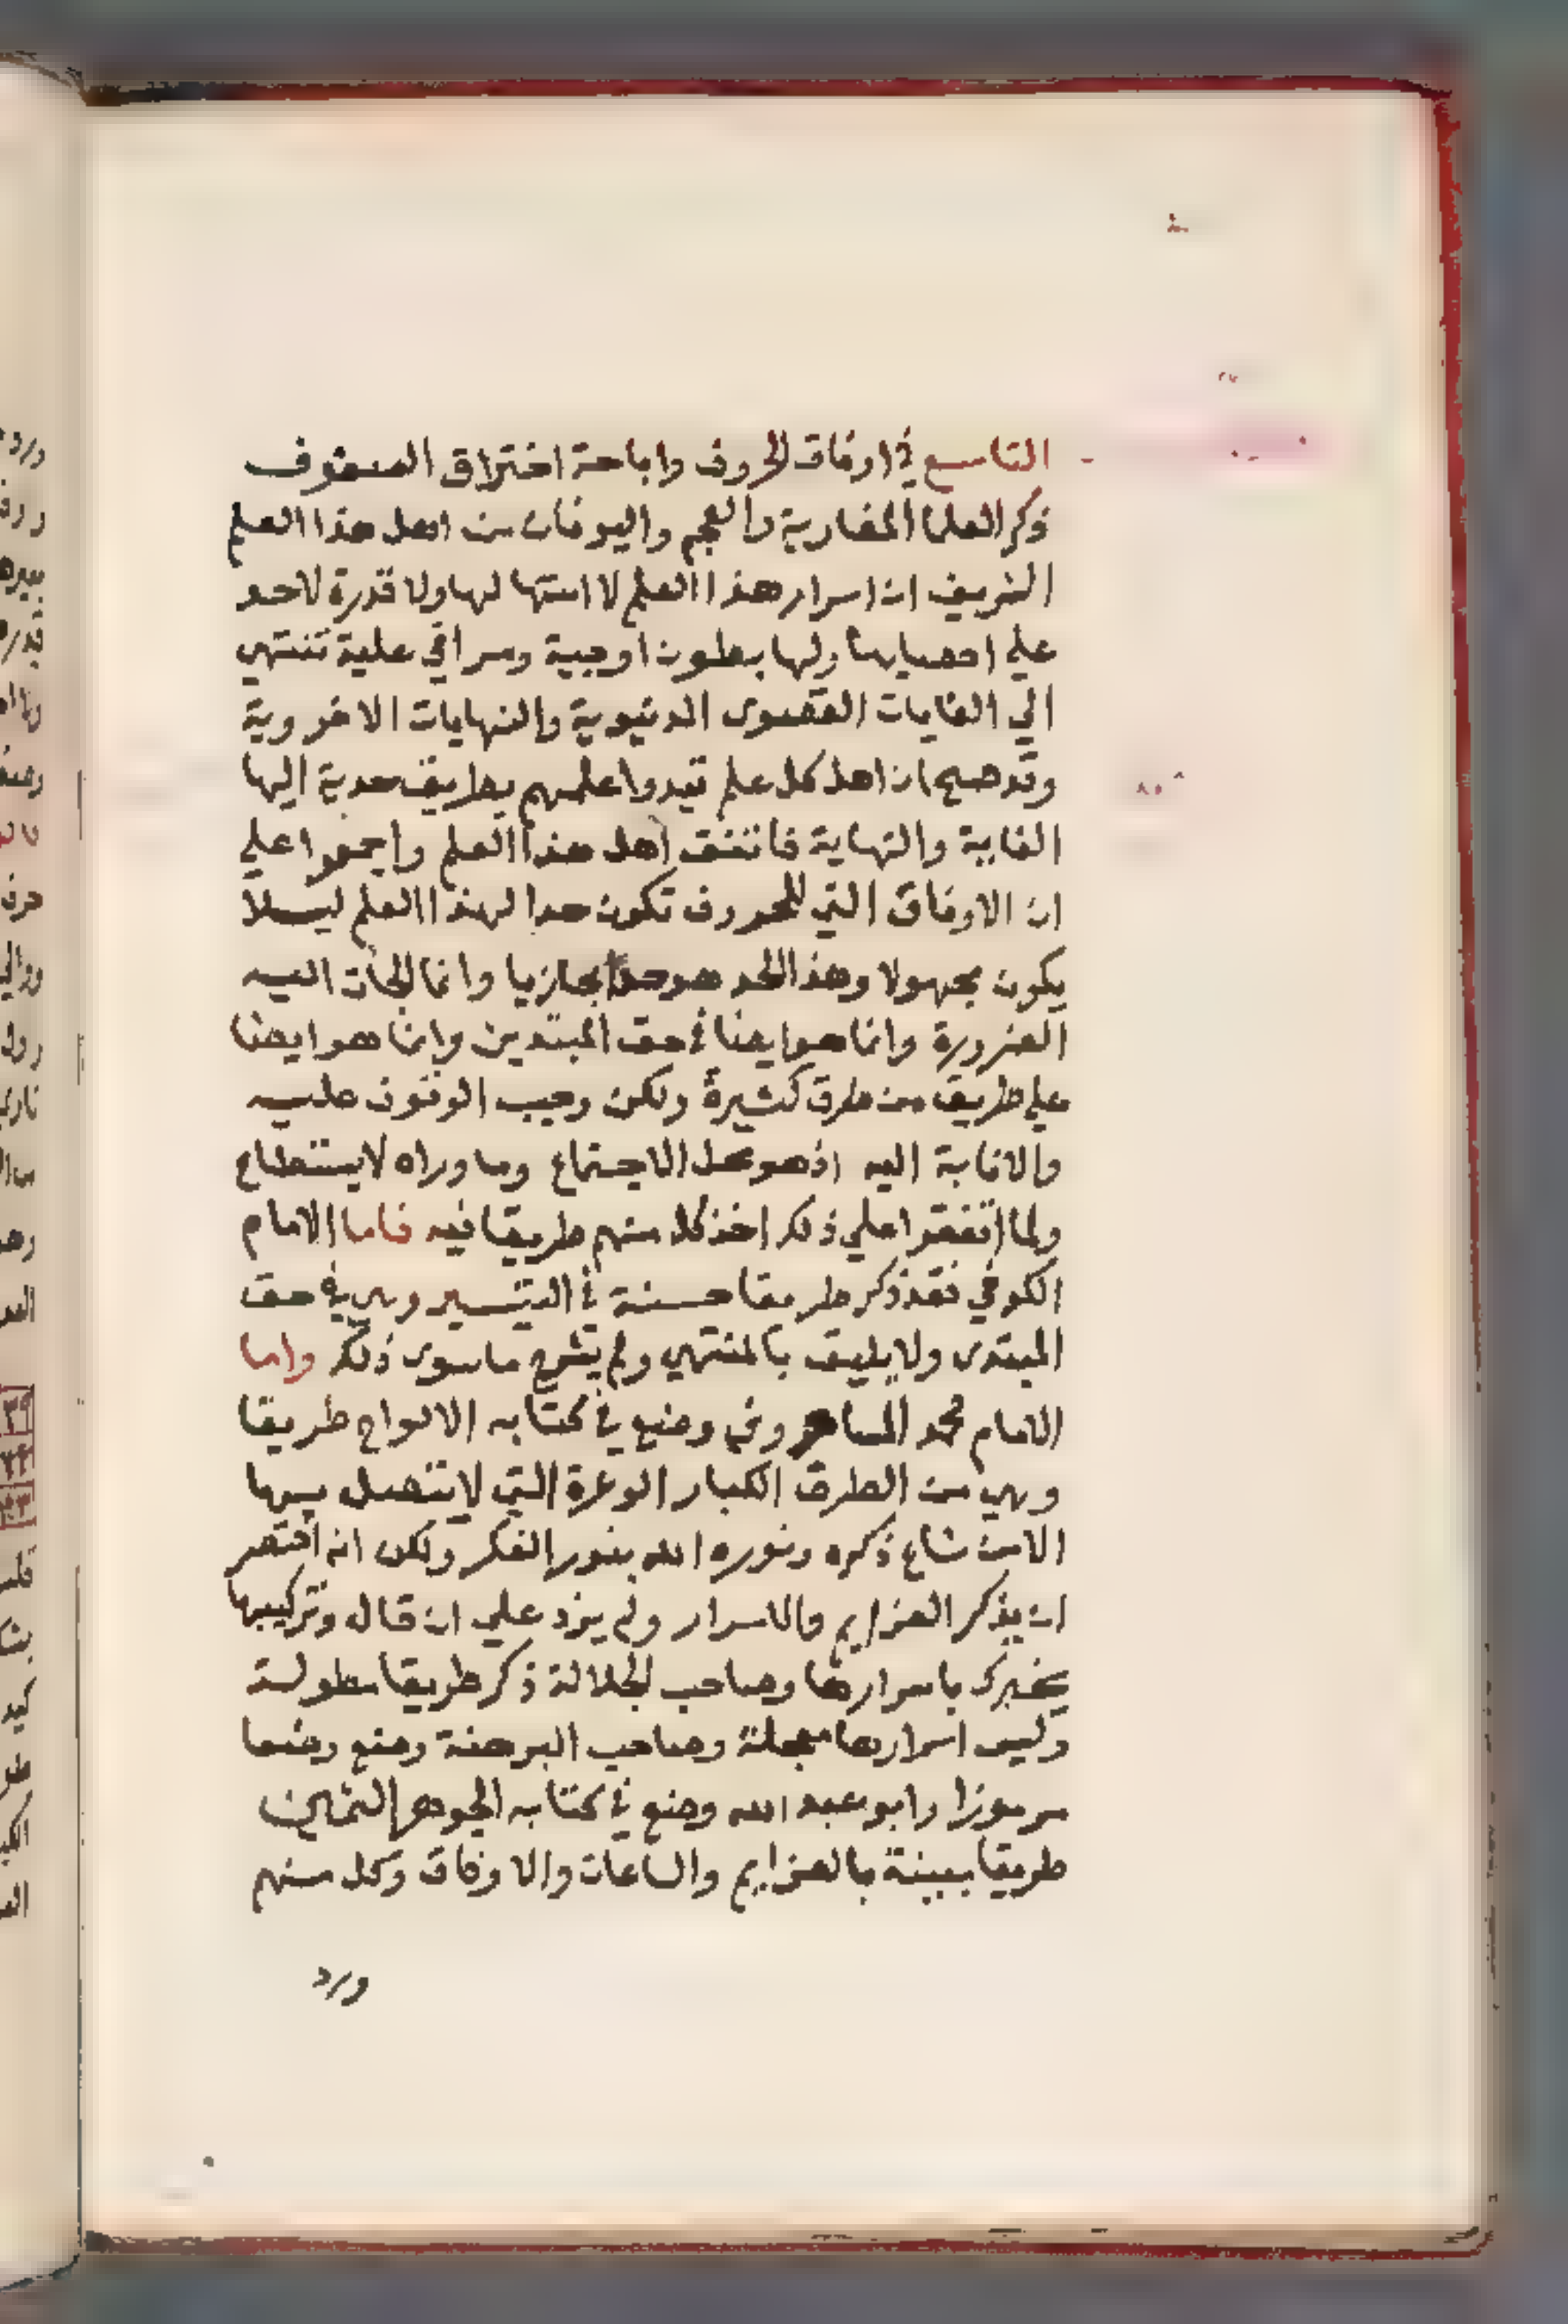 التاسع في اوفاق الحروف واباحة اختراق الصفوف
ذكر العلما المغاربة والعجم واليونان من اهل هذا العلم
الشريف ان اسرار هذا العلم لا انتها لها ولا قدرة لاحد
علي احصايها ولها بطون اوجبية ومراقي علية تنتهي
الي الغايات القصوى الدنيوية والنهايات الاخروية
وقد صح ان اهل كل علم قيدوا علمهم بطريف حدية اليها
الغاية والنهاية فاتفق اهل هذا العلم واجمعوا علي
ان الاوفاق التي للحروف تكون حدا لهذا العلم ليسلا
يكون مجهولا وهذا الحد هو حدا مجازيا وانما لجات اليه
الضرورة وانما هو ايضا في حق المبتدين وانما هو ايضا
علي طريق من طرق كثيرة ولكن وجب الوقوف عليه
والانابة اليه اذ هو محل الاجتماع وما وراه لا يستطاع
ولما اتفقوا علي ذلك اخذ كل منهم طريقا فيه فاما الامام
الكوفي فقد ذكر طريقا حسنة في التيسير وهي في حق
المبتدى ولا يليق بالمنتهي ولم يشرح ما سوى ذلك واما
الامام محمد وضع في كتابه الالواح طريقا
وهي من الطرق الكبار الوعرة التي لا تتصل بسها
الا من شاع ذكره ونوره الله بنور الفكر ولكن انه اختصر
ان يذكر العزايم والاسرار ولم يزد علي ان قال وتركيبها
يخبرك باسرارها وصاحب الجلالة ذكر طريقا مطولة
وليس اسرارها مجملة وصاحب البرهنة وضع وضعا
مرموزا وابو عبد الله وضع في كتابه الجوهر الثمين
طريقا مبينة بالعزايم والساعات والاوفاق وكل منهم
ورد